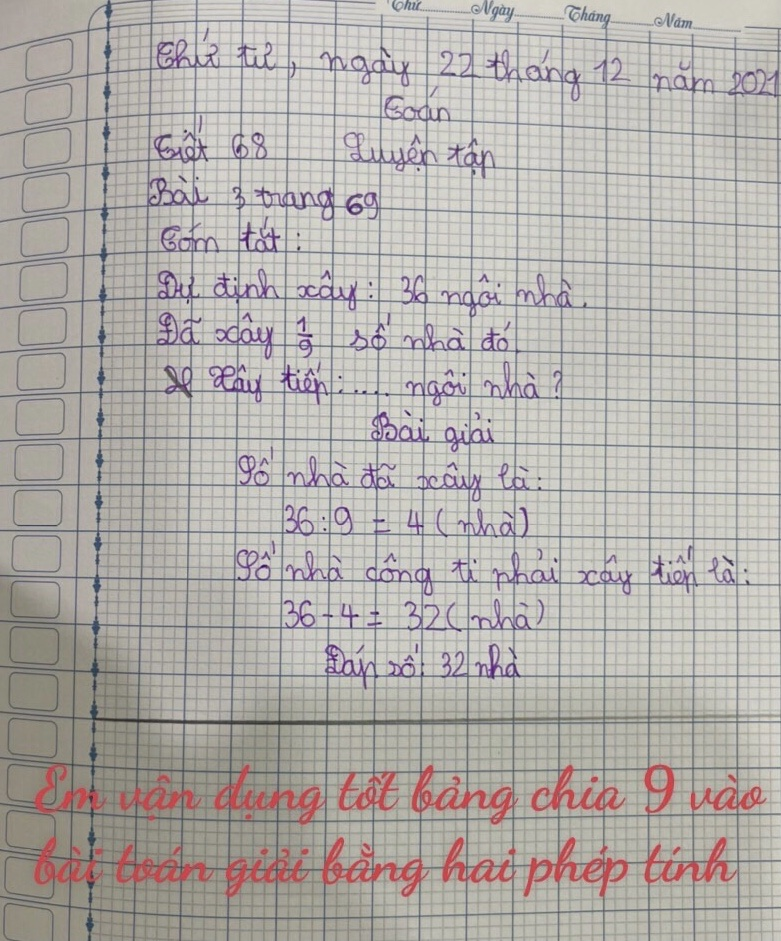 Thứ Ngày Tháng Năm
Thứ tư, ngày 22 tháng 12 năm 2021
Toán
Tiết 68 Luyện tập
Bài 3 trang 69
Tóm tắt:
Dự định xây: 36 ngôi nhà.
Đã xây 1/9 số nhà đó
Xây tiếp:.... ngôi nhà?
Bài giải
Số nhà đã xây là:
36:9 = 4 (nhà)
Số nhà công ti phải xây tiếp là:
36-4 = 32 (nhà)
Đáp số: 32 nhà
Em vận dụng tốt bảng chia 9 vào
bài toán giải bằng hai phép tính